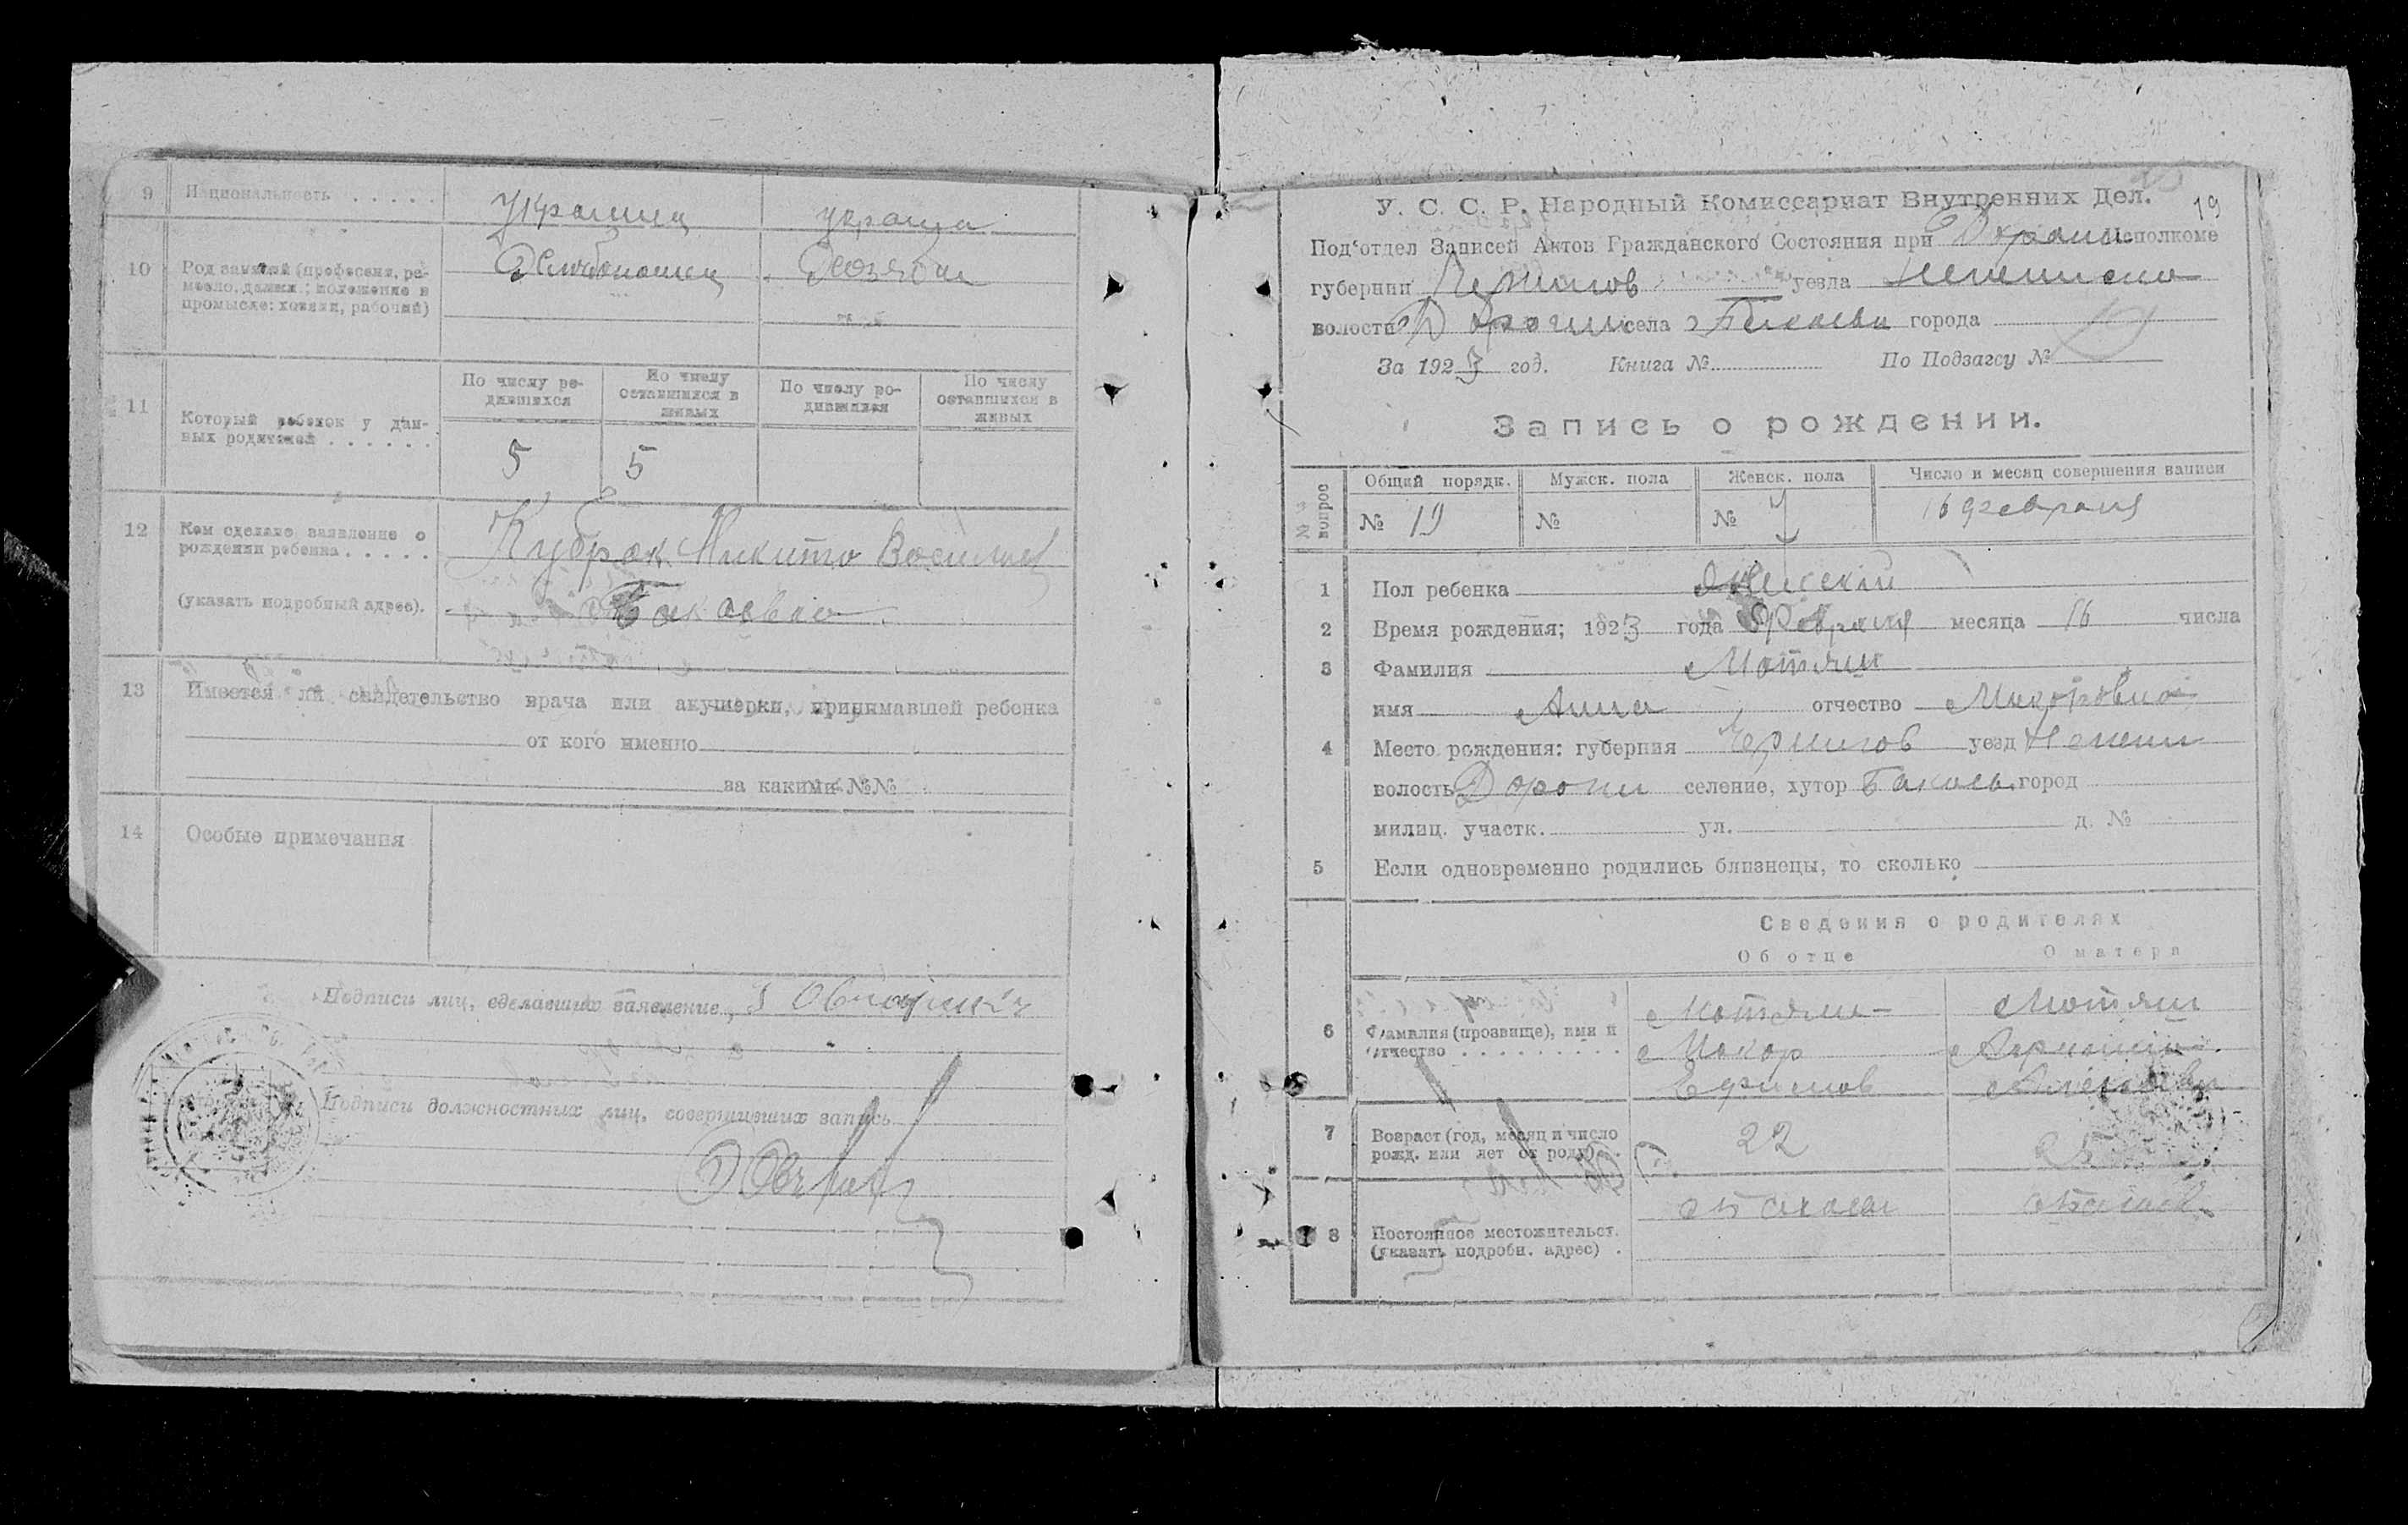 9 Национальность . . . . . Украинец украин
10 Род занятий (професия, ре-
месло, должн.; положение в
промысле: хозяин, рабочий)
11 Который ребенок у дан-
ных родителей . . . . . .
По числу ро-
дившихся
По числу
оставшихся в
живых
По числу ро-
дившихся
По числу
оставшихся в
живых
5 5
12 Кем сделано заявление о
рождении ребенка . . . . .
Кубрак Микито Васильев
(указать подробный адрес).
13 Имеется ли свидетельство врача или акушерки, принимавшей ребенка
от кого именно
за какими №№
14 Особые примечания
Подписи лиц, сделавших заявление,
Подписи должностных лиц, совершивших запись
У. С. С. Р. Народный Комиссариат Внутренних Дел. 19
Под'отдел Записей Актов Гражданского Состояния при Исполкоме
губернии Чернигов уезда
волости села города
За 1923 год. Книга № По Подзагсу №
Запись о рождении.
№№ вопрос
Общий порядк. Мужск. пола Женск. пола Число и месяц совершения записи
№ 19 № № 7 16 февраля
1 Пол ребенка Женский
2 Время рождения; 1923 года Февраля месяца 16 числа
3 Фамилия Мотяш
имя Анна отчество Макаровна
4 Место рождения: губерния Чернигов уезд Нежин
волость Дорогин селение, хутор Бакаев город
милиц. участк. ул. д. №
5 Если одновременно родились близнецы, то сколько
Сведения о родителях
Об отце О матери
6 Фамилия (прозвище), имя и
отчество . . . . . . . . .
Мотяш Мотяш
Макар
Ефимов
7 Возраст (год, месяц и число
рожд. или лет от роду) . .
22 25
8 Постоянное местожительст.
(указать подробн. адрес) .